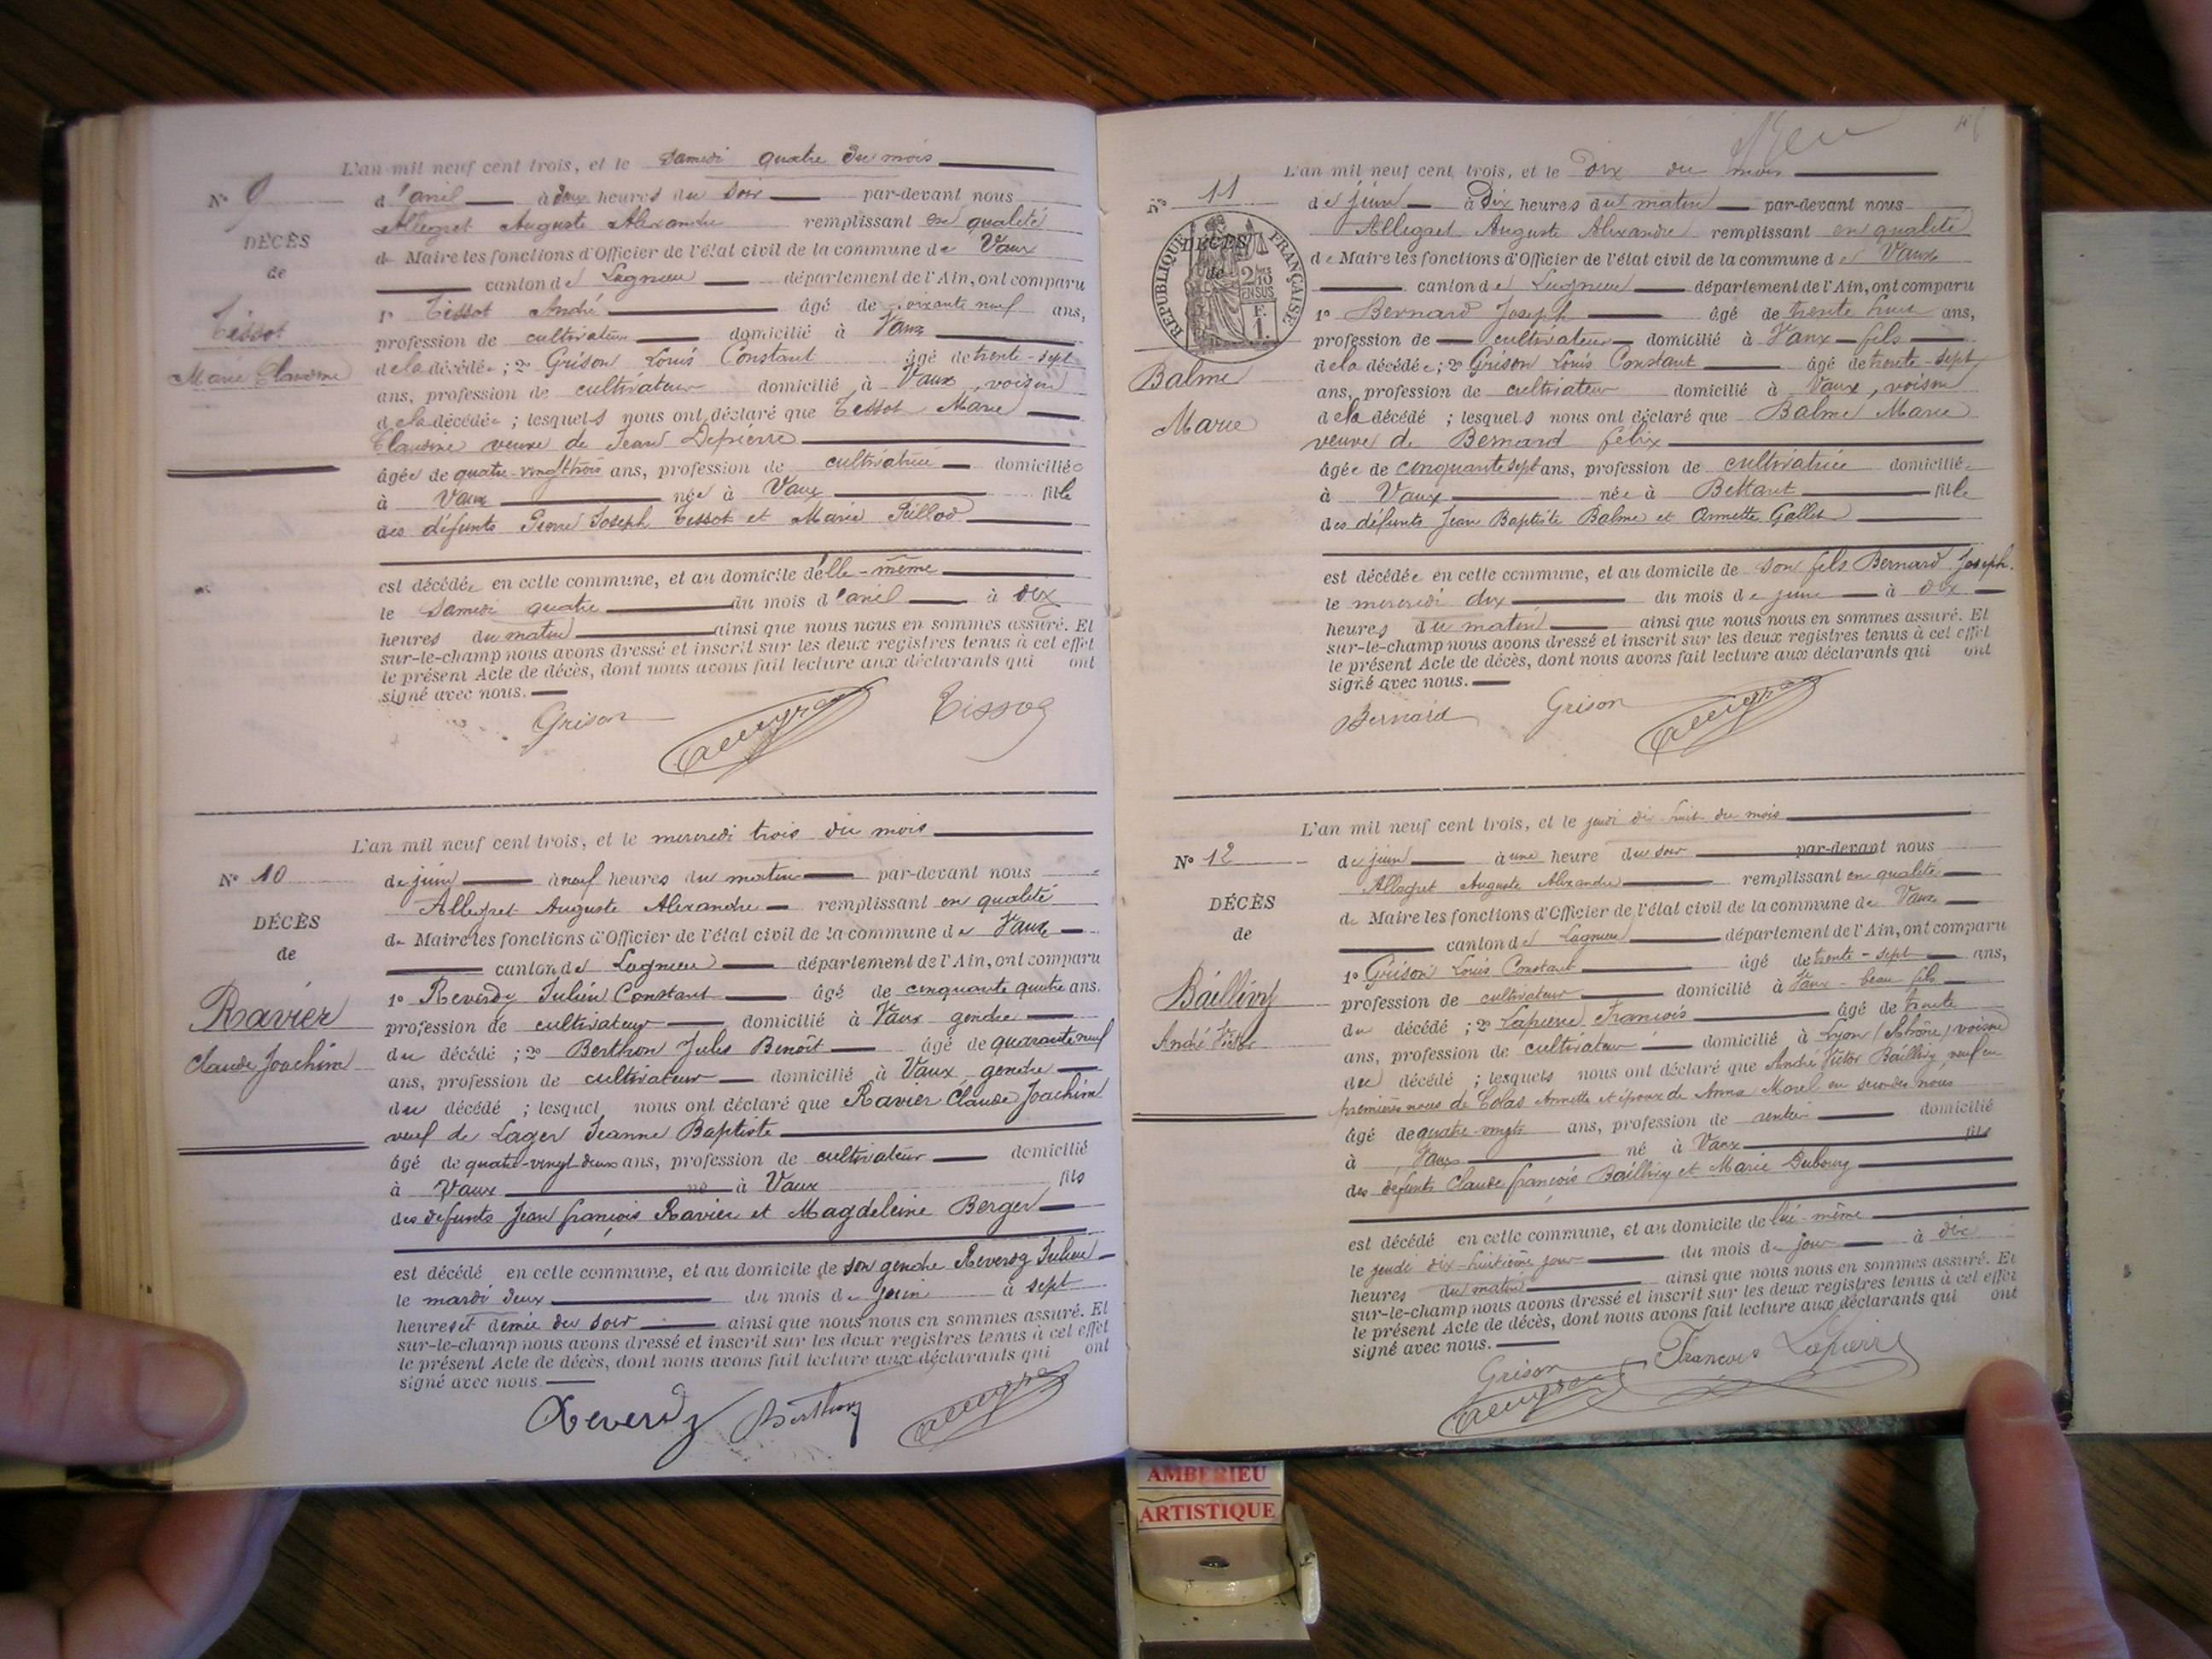 L'an mil neuf cent trois, et le Samedi quatre du mois
N° 9
d'avril à deux heures du soir par-devant nous
Allegret Auguste Alexandre remplissant en qualité
DÉCÈS
de Maire les fonctions d'Officier de l'état civil de la commune de Vaux
de
canton de Lagnieu département de l'Ain, ont comparu
1° Tissot André âgé de soixante neuf ans,
Tissot
profession de cultivateur domicilié à Vaux
Marie Claudine
de la décédée ; 2° Grison Louis Constant âgé de trente-sept
ans, profession de cultivateur domicilié à Vaux, voisin
de la décédée ; lesquels nous ont déclaré que Tissot Marie
Claudine veuve de Jean Depierre
âgée de quatre-vingt trois ans, profession de cultivatrice domiciliée
à Vaux née à Vaux fille
des défunts Pierre Joseph Tissot et Marie
est décédée en cette commune, et au domicile d'elle-même
le Samedi quatre du mois d'avril à dix
heures du matin ainsi que nous nous en sommes assuré. Et
sur-le-champ nous avons dressé et inscrit sur les deux registres tenus à cet effet
le présent Acte de décès, dont nous avons fait lecture aux déclarants qui ont
signé avec nous.
Grison Tissot
L'an mil neuf cent trois, et le mercredi trois du mois
N° 10
de juin à neuf heures du matin par-devant nous
Allegret Auguste Alexandre remplissant en qualité
DÉCÈS
de Maire les fonctions d'Officier de l'état civil de la commune de Vaux
de
canton de Lagnieu département de l'Ain, ont comparu
1° Reverdy Julien Constant âgé de cinquante quatre ans.
Ravier
profession de cultivateur domicilié à Vaux gendre
Claude Joachim
du décédé ; 2° Berthon Jules Benoît âgé de quarante neuf
ans, profession de cultivateur domicilié à Vaux, gendre
du décédé ; lesquel nous ont déclaré que Ravier Claude Joachim
veuf de Lager Jeanne Baptiste
âgé de quatre-vingt deux ans, profession de cultivateur domicilié
à Vaux né à Vaux fils
des defunts Jean françois Ravier et Magdeleine Berger
est décédé en cette commune, et au domicile de son gendre Reverdy Julien
le mardi deux du mois de juin à sept
heures et demie du soir ainsi que nous nous en sommes assuré. Et
sur-le-champ nous avons dressé et inscrit sur les deux registres tenus à cet effet
le présent Acte de décès, dont nous avons fait lecture aux déclarants qui ont
signé avec nous.
Reverdy Berthon
L'an mil neuf cent trois, et le Dix du mois
N° 11
de juin à Dix heures du matin par-devant nous
Allegret Auguste Alexandre remplissant en qualité
RÉPUBLIQUE FRANÇAISE
DÉCÈS
de
de Maire les fonctions d'Officier de l'état civil de la commune de Vaux
canton de Lagnieu département de l'Ain, ont comparu
1° Bernard Joseph âgé de trente huit ans,
profession de cultivateur domicilié à Vaux fils
de la décédée ; 2° Grison Louis Constant âgé de trente-sept
Balme
ans, profession de cultivateur domicilié à Vaux, voisin
Marie
de la décédé ; lesquels nous ont déclaré que Balme Marie
veuve de Bernard félix
âgée de cinquante sept ans, profession de cultivatrice domiciliée
à Vaux née à Bettant fille
des défunts Jean Baptiste Balme et Annette Gallet
est décédée en cette commune, et au domicile de son fils Bernard Joseph.
le mercredi dix du mois de juin à dix
heures du matin ainsi que nous nous en sommes assuré. Et
sur-le-champ nous avons dressé et inscrit sur les deux registres tenus à cet effet
le présent Acte de décès, dont nous avons fait lecture aux déclarants qui ont
signé avec nous.
Bernard Grison
L'an mil neuf cent trois, et le jeudi dix huit du mois
N° 12
de juin à une heure du soir par-devant nous
Allegret Auguste Alexandre remplissant en qualité
DÉCÈS
de Maire les fonctions d'Officier de l'état civil de la commune de Vaux
de
canton de Lagnieu département de l'Ain, ont comparu
1° Grison Louis Constant âgé de trente-sept ans,
Baillivy
profession de cultivateur domicilié à Vaux beau fils
André Victor
du décédé ; 2° Lapierre François âgé de trente
ans, profession de cultivateur domicilié à Lyon (Rhône) voisin
du décédé ; lesquels nous ont déclaré que André Victor Baillivy veuf en
premières noces de Colas Annette et époux de Anna Morel en secondes noces
âgé de quatre-vingts ans, profession de rentier domicilié
à Vaux né à Vaux fils
des défunts Claude françois Baillivy et Marie Dubourg
est décédé en cette commune, et au domicile de lui-même
le jeudi dix-huitième jour du mois de jour à dix
heures du matin ainsi que nous nous en sommes assuré. Et
sur-le-champ nous avons dressé et inscrit sur les deux registres tenus à cet effet
le présent Acte de décès, dont nous avons fait lecture aux déclarants qui ont
signé avec nous.
Grison François Lapierre
AMBERIEU
ARTISTIQUE